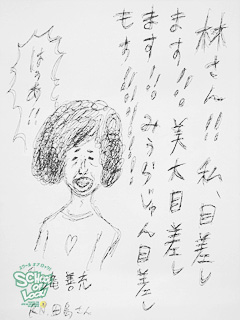 林さん!! 私、目差し
ます!!! 美大目差し
ます!!! みうらじゅん目差し
もち!!!!!!
はうあ!!
亀 善充
R.N.田島さん
SCHOOL OF LOCK!